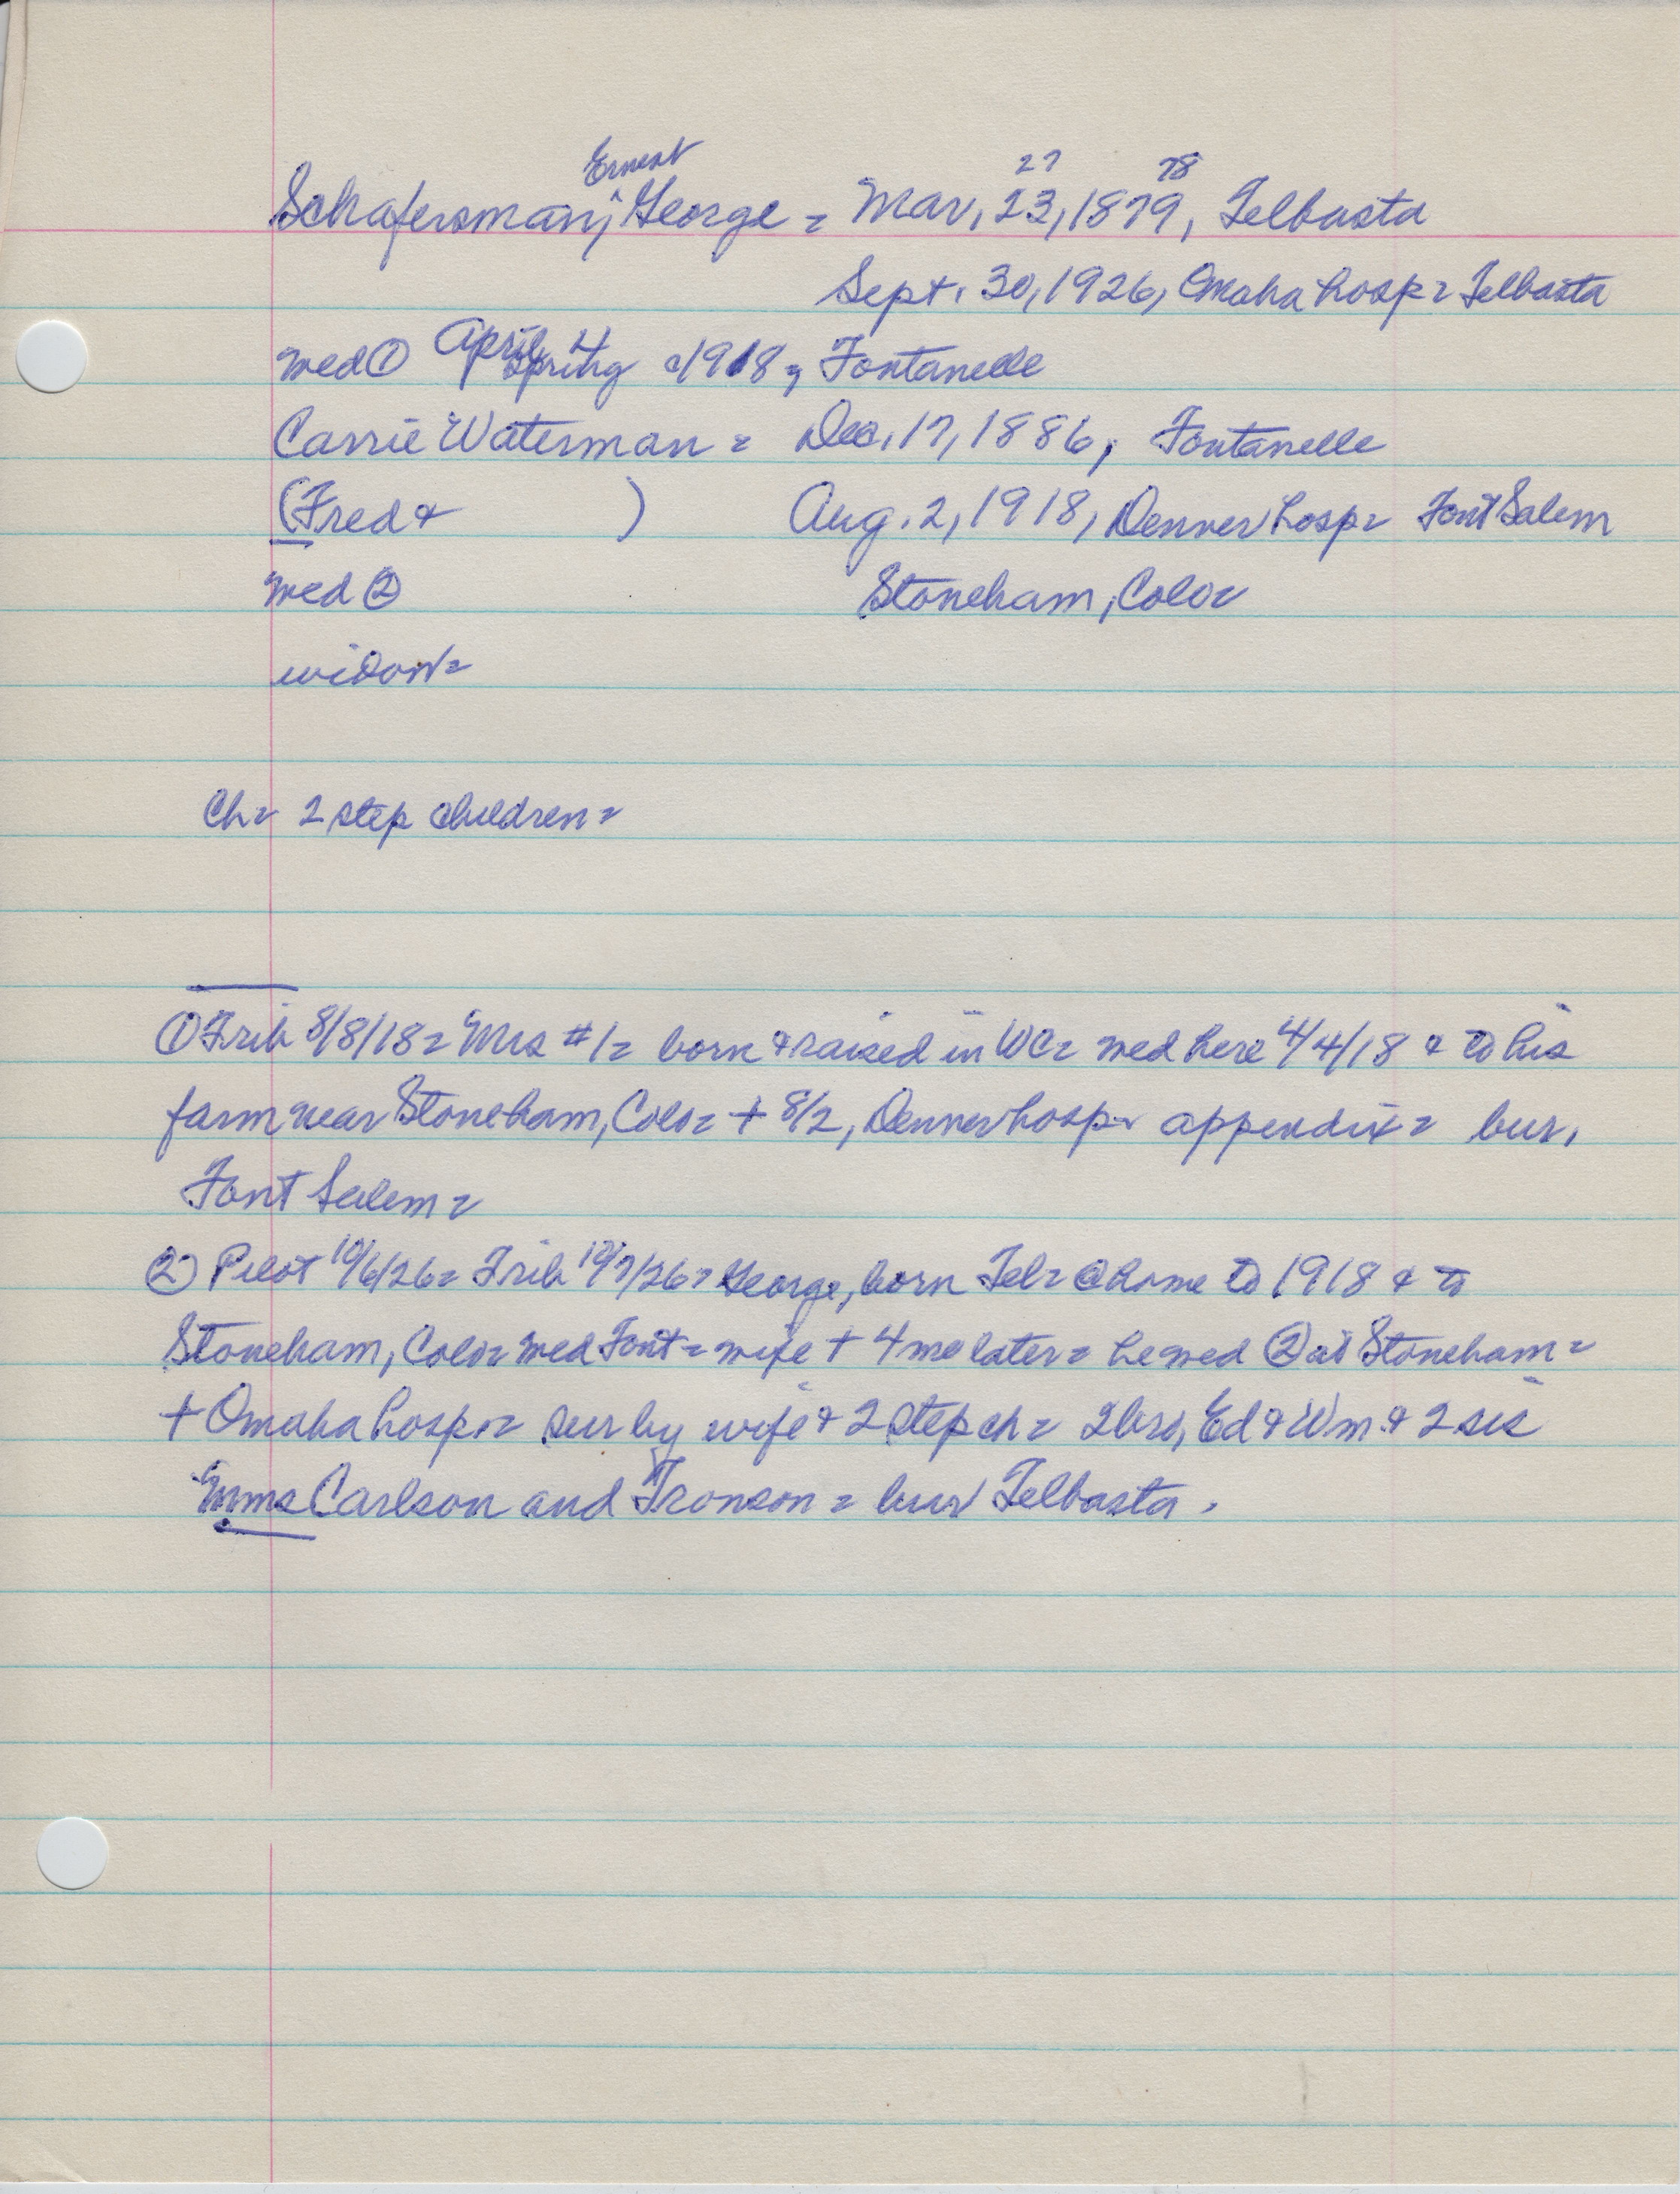 Ernest 27 78
Schafersman, George = Mar, 23, 1879, Telbasta
Sept. 30, 1926, Omaha hosp = Telbasta
med ① April 4 Spring 1918, Fontanelle
Carrie Waterman = Dec. 17, 1886, Fontanelle
(Fred & ) Aug. 2, 1918, Denver hosp = Font Salem
med ② Stoneham, Colo =
widow =
Ch = 2 step children =
① Trib 8/8/18 = Mrs #1 = born & raised in WC = med here 4/4/18 & to his
farm near Stoneham, Colo = + 8/2, Denver hosp = appendix = bur,
Font Salem =
② Pilot 10/6/26 = Trib 10/7/26 = George, born Tel = @ home to 1918 & to
Stoneham, Colo = med Font = wife + 4 mo later = he med ② at Stoneham =
+ Omaha hosp = sur by wife & 2 step ch = 2 bro, Ed & Wm & 2 sis
Mms Carlson and Tronson = bur Telbasta.